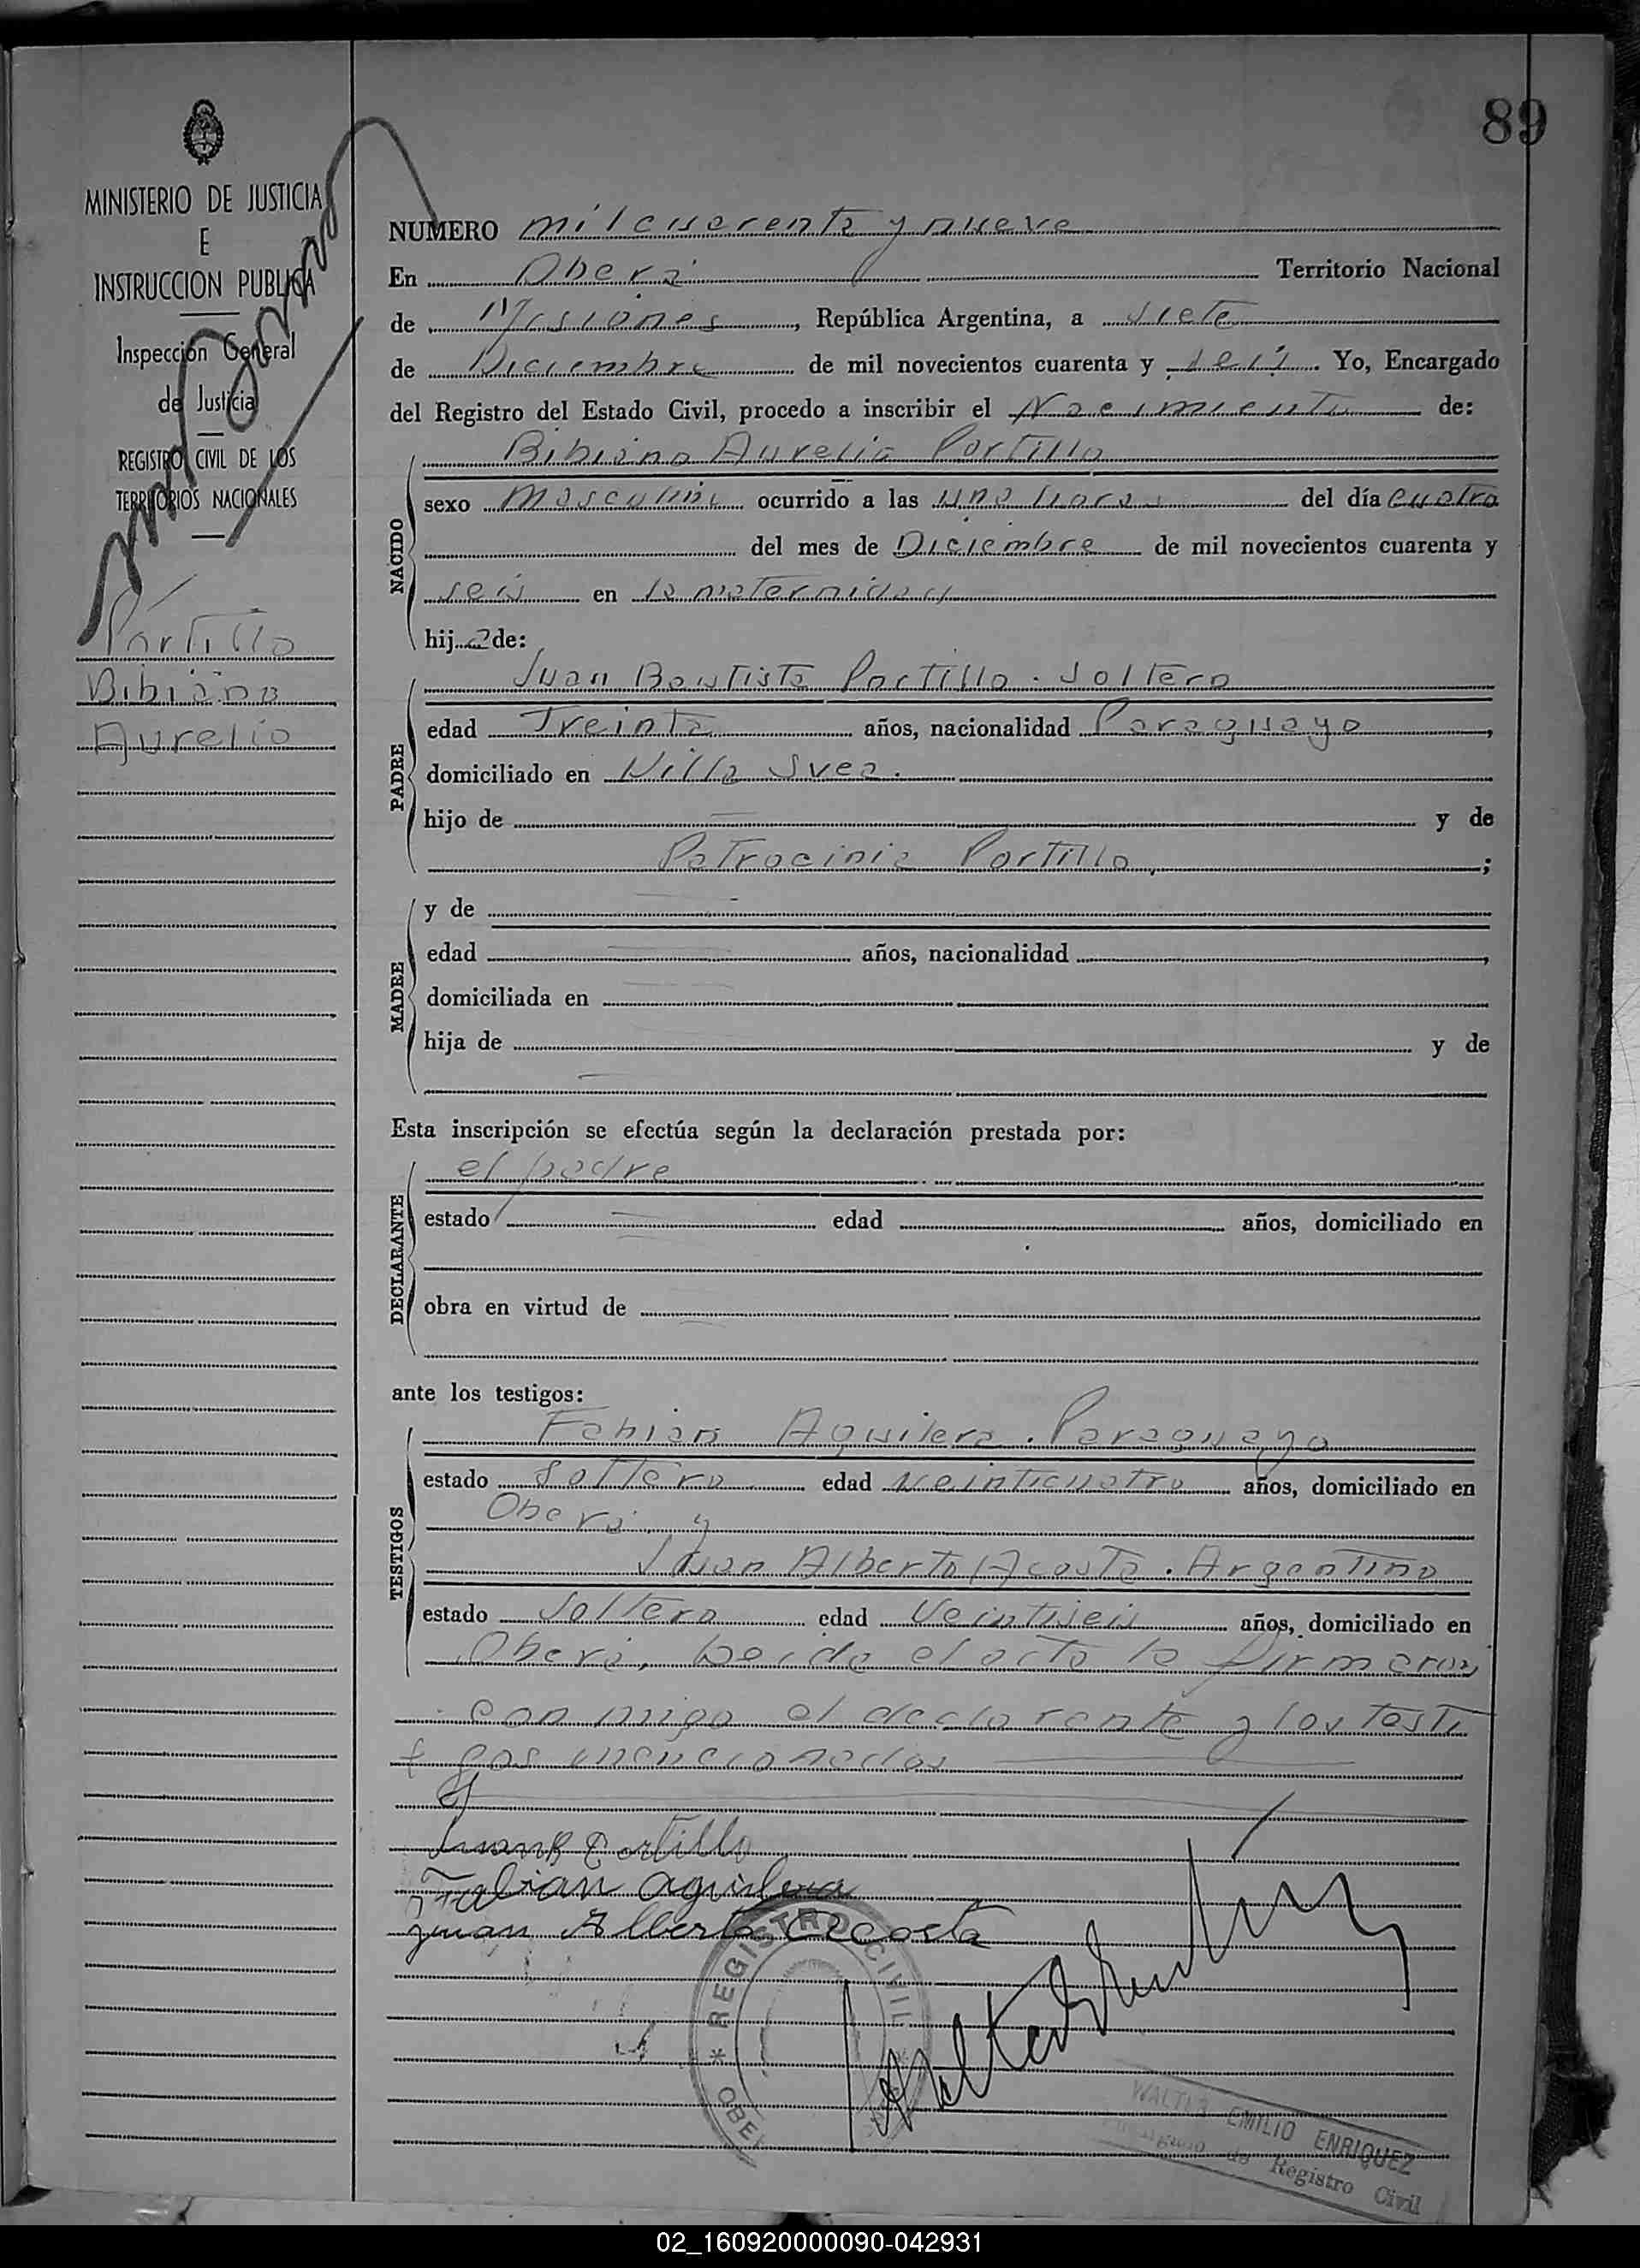 89
MINISTERIO DE JUSTICIA
E
INSTRUCCION PUBLICA
Inspección General
de Justicia
REGISTRO CIVIL DE LOS
TERRITORIOS NACIONALES
Portillo
Bibiano
Aurelio
NUMERO mil cuarenta y nueve
En Oberá Territorio Nacional
de Misiones, República Argentina, a siete
de Diciembre de mil novecientos cuarenta y seis. Yo, Encargado
del Registro del Estado Civil, procedo a inscribir el Nacimiento de:
NACIDO
Bibiano Aurelio Portillo
sexo Masculino ocurrido a las una horas del día cuatro
del mes de Diciembre de mil novecientos cuarenta y
seis en la maternidad
hij de:
PADRE
Juan Bautista Portillo. Soltero
edad Treinta años, nacionalidad Paraguayo,
domiciliado en Villa Svea.
hijo de — y de
Patrocinia Portillo;
MADRE
y de —
edad — años, nacionalidad,
domiciliada en
hija de y de
Esta inscripción se efectúa según la declaración prestada por:
DECLARANTE
el padre
estado edad años, domiciliado en
obra en virtud de
ante los testigos:
TESTIGOS
Fabian Aguilera. Paraguayo
estado Soltero edad veinticuatro años, domiciliado en
Oberá y
Juan Alberto Acosta. Argentino
estado Soltero edad Veintiseis años, domiciliado en
Oberá, el acta la firmaron
conmigo el declarante y los testi
gos mencionados
Juan B Portillo
Fabian Aguilera
Juan Alberto Acosta
REGISTRO CIVIL
OBE
WALTER EMILIO ENRIQUEZ
Encargado de Registro Civil
02_160920000090-042931